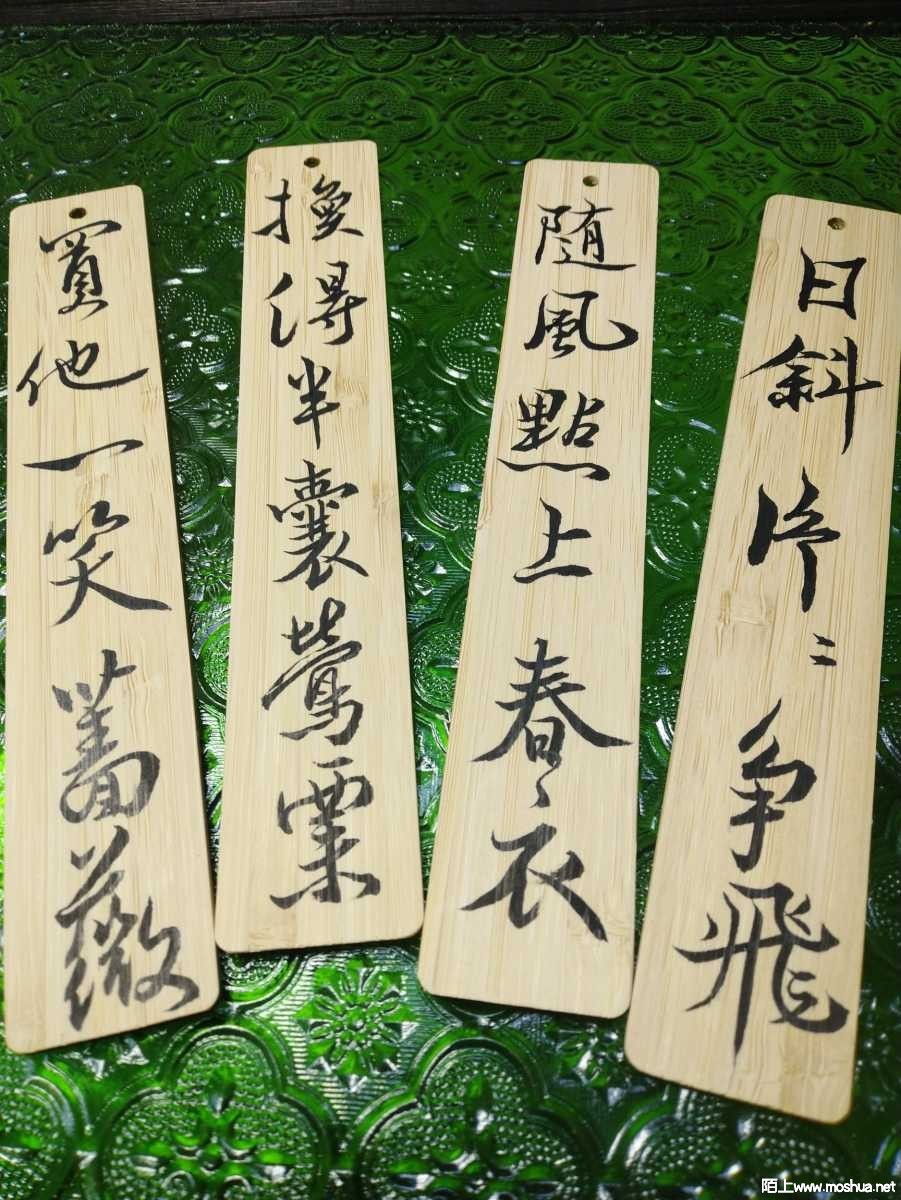 日斜片〻争飛
隨風點上春衣
換得半囊鶯粟
買他一笑薔薇
陌上www.moshua.net